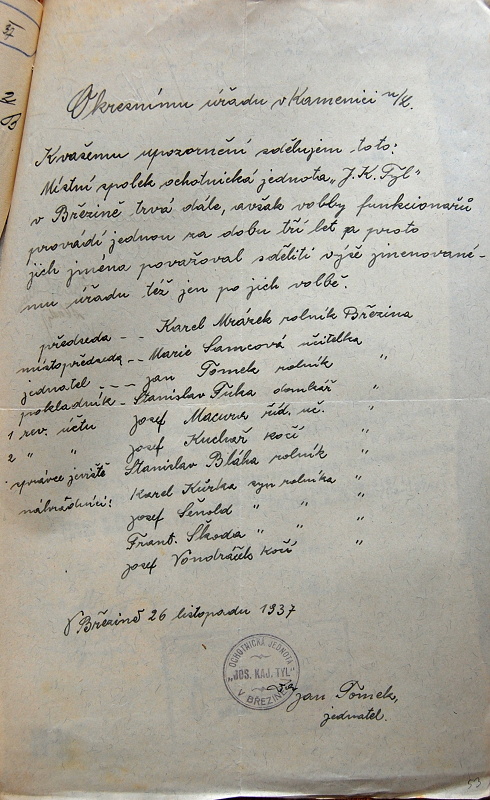 Okresnímu úřadu v Kamenici n/L.
K vašemu upozornění sdělujem toto:
Místní spolek ochotnická jednota „J. K. Tyl"
v Březině trvá dále, avšak volby funkcionářů
provádí jednou za dobu tří let a proto
jich jména považoval sděliti výše jmenované-
mu úřadu též jen po jich volbě.
předseda - - Karel Mrázek rolník Březina
místopředseda - Marie Samcová učitelka "
jednatel - - Jan Tomek rolník "
pokladník - Stanislav Fuka domkář "
1 rev. účtu Josef Macura říd. uč. "
2 " " Josef Kuchař kočí "
správce jeviště Stanislav Bláha rolník "
náhradníci: Karel Kůrka syn rolníka "
Josef Šenold " " "
Frant. Škoda " "
Josef Vondráček kočí "
V Březině 26 listopadu 1937
OCHOTNICKÁ JEDNOTA
„JOS. KAJ. TYL"
V BŘEZINĚ
Jan Tomek,
jednatel.
53